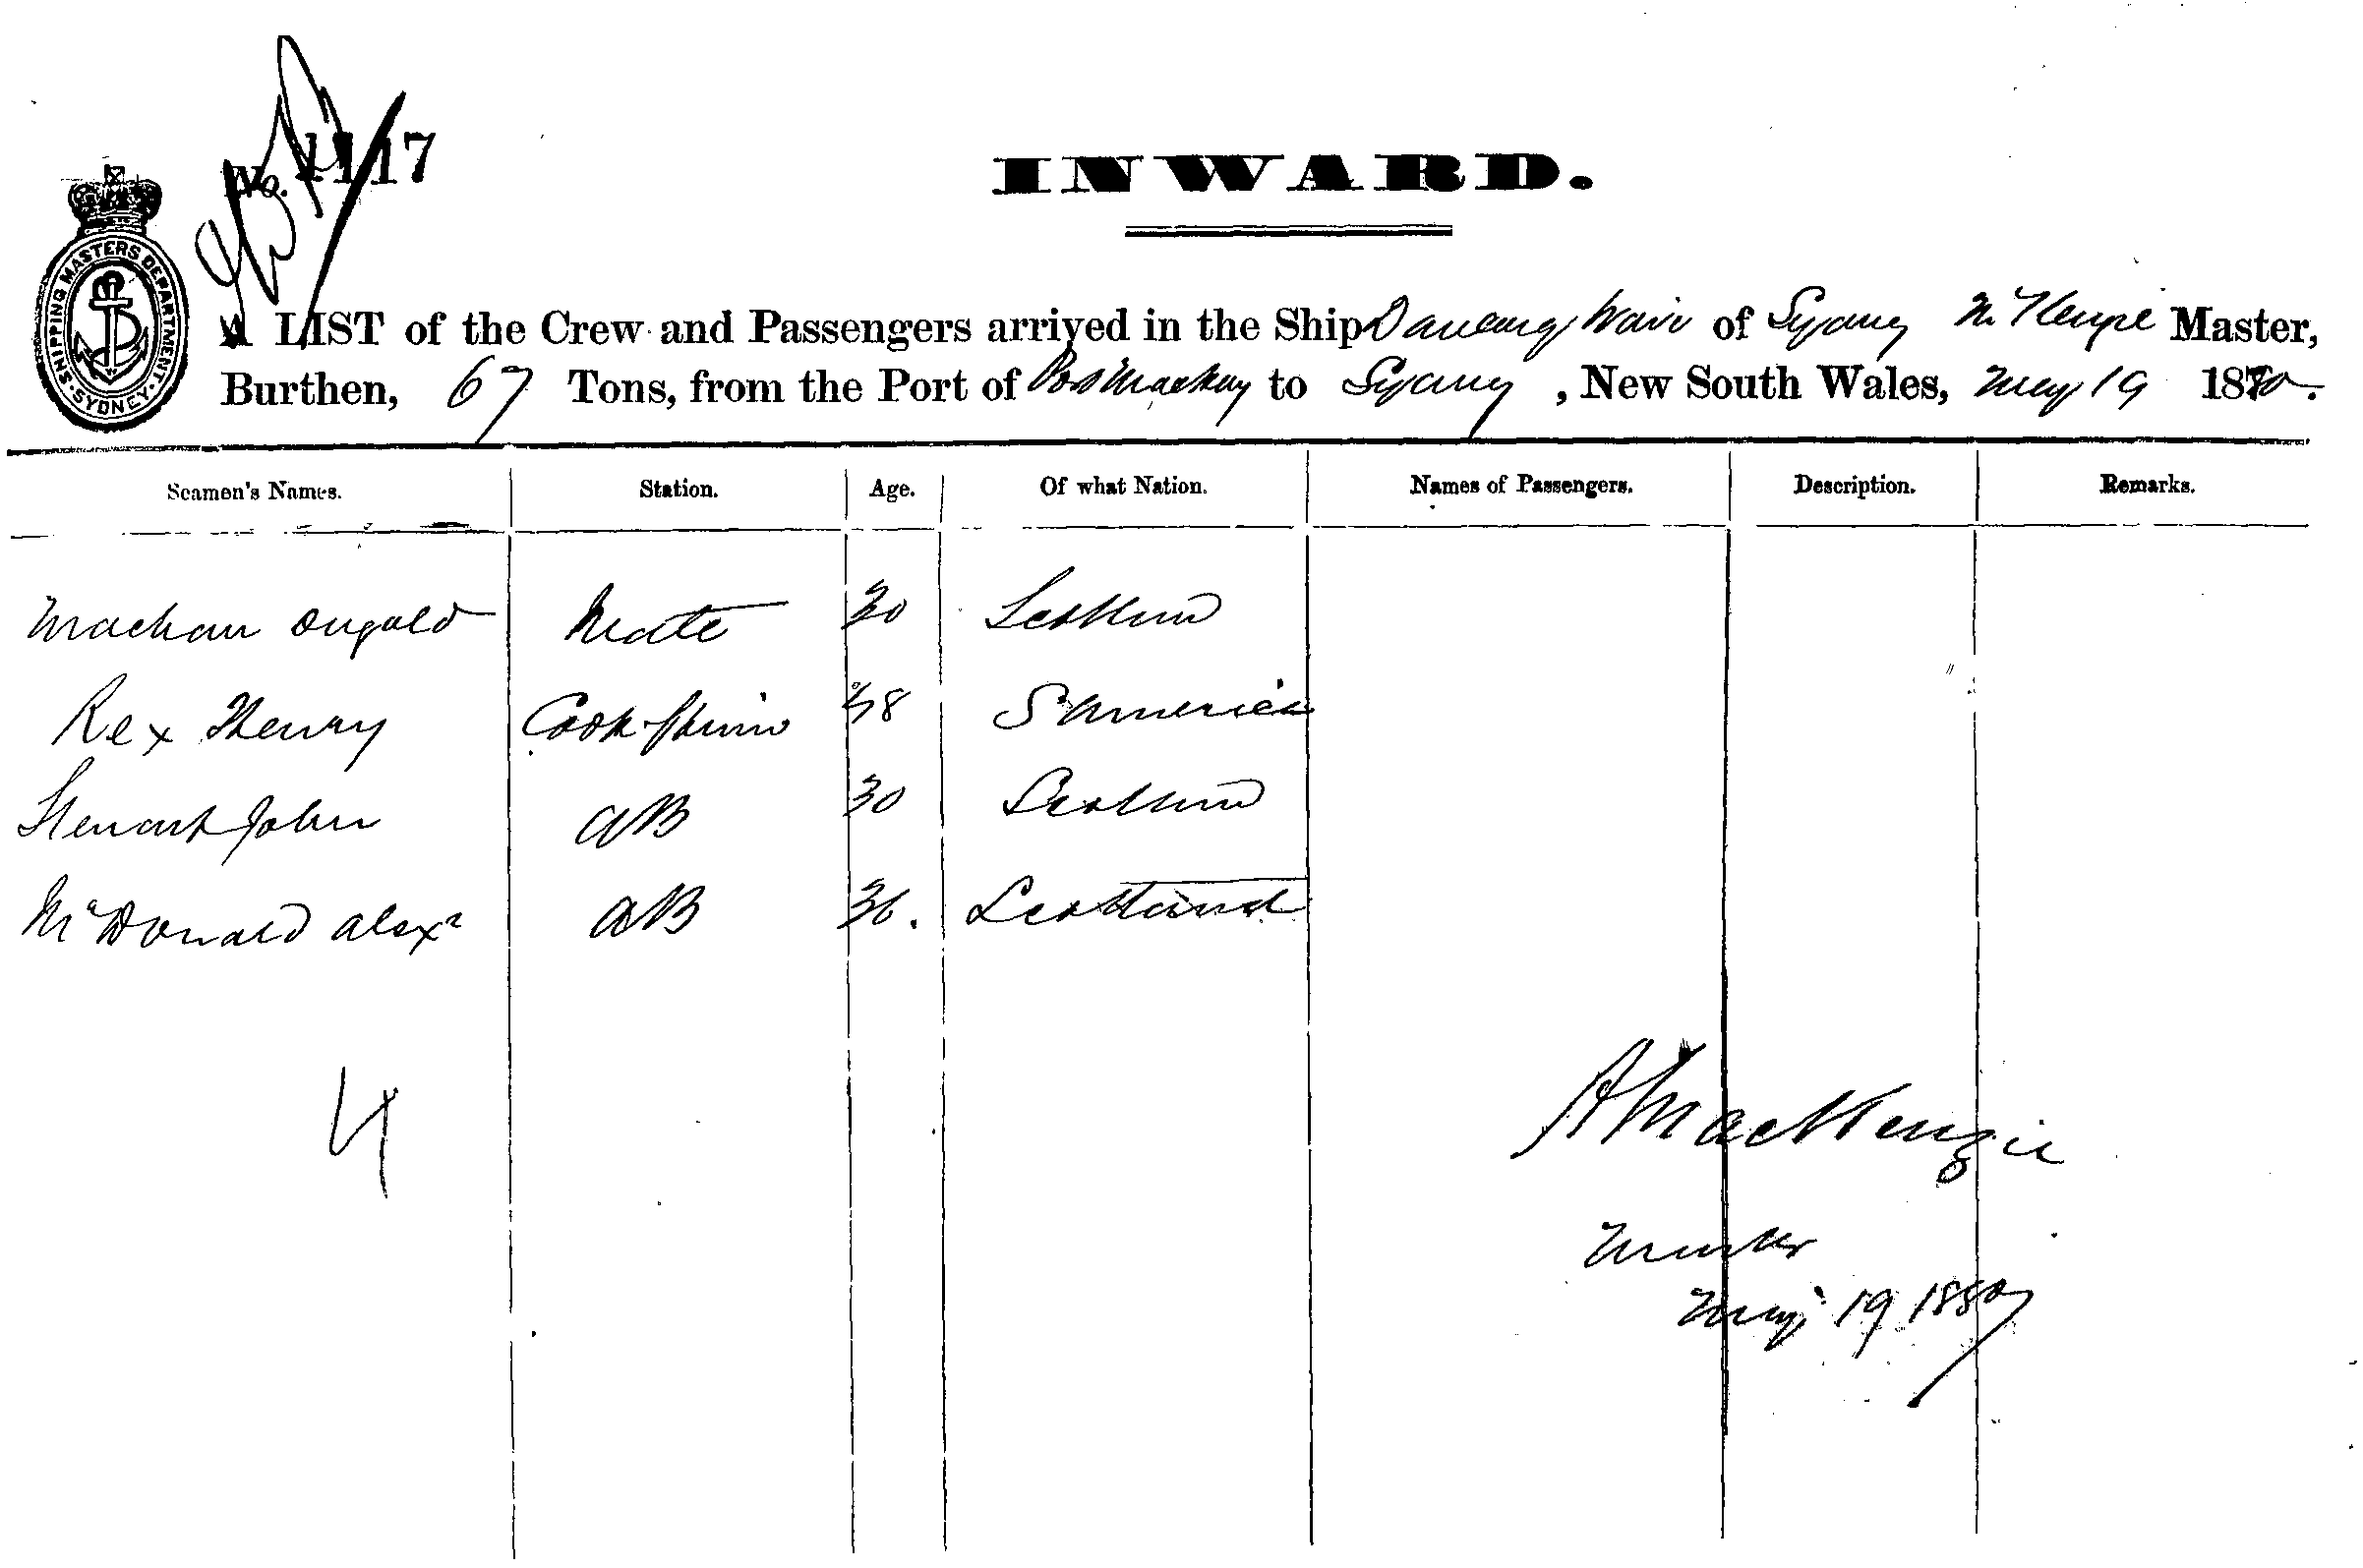 No. 1117
INWARD.
SHIPPING MASTERS DEPARTMENT. SYDNEY.
A LIST of the Crew and Passengers arrived in the Ship Dancing Wave of Sydney McKenzie Master,
Burthen, 67 Tons, from the Port of Port Mackay to Sydney, New South Wales, May 19 1880.
Seamen's Names. Station. Age. Of what Nation. Names of Passengers. Description. Remarks.
Dugald Mate 30 Scotland
Rex Henry Cook 48 S America
Stewart John AB 30 Scotland
McDonald Alexr AB 36. Scotland
4
A MacKenzie
Master
May 19 1880